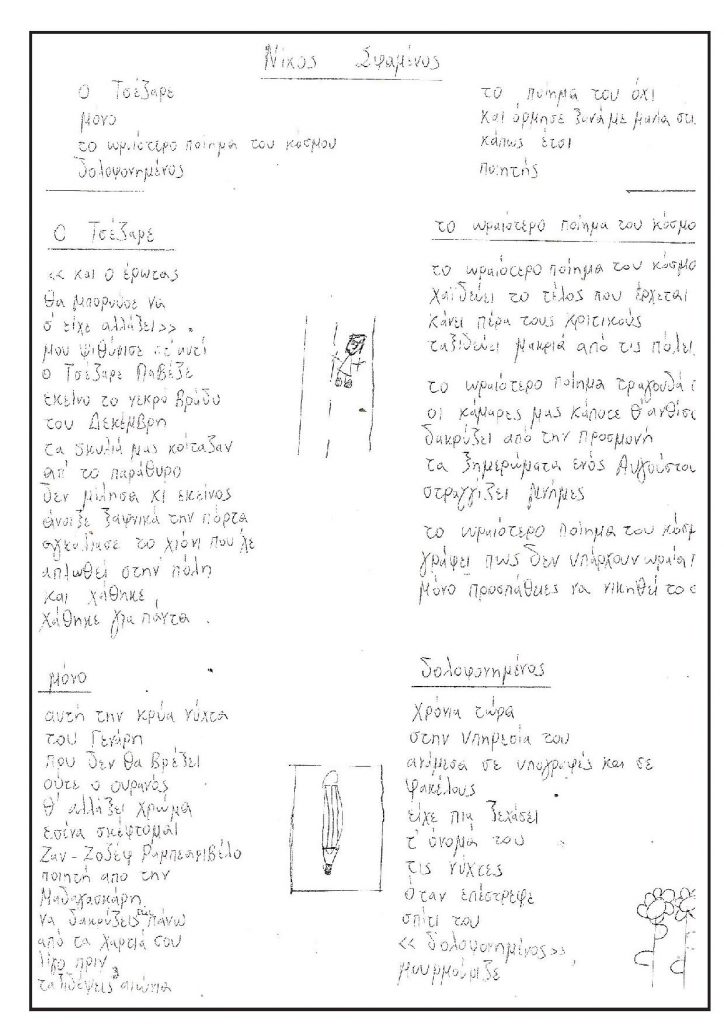 Νίκος Σφαμένος
Ο Τσέζαρε
μόνο
το ωραιότερο ποίημα του κόσμου
δολοφονημένος
το ποίημα του όχι
και όρμησε ξανά με μαλα στ
κάπως έτσι
ποιητής
Ο Τσέζαρε
<< και ο έρωτας
θα μπορούσε να
σ' είχε αλλάξει>>
μου ψιθύρισε στ' αυτί
ο Τσέζαρε Παβέζε
εκείνο το νεκρό βράδυ
του Δεκέμβρη
τα σκυλιά μας κοίταζαν
απ' το παράθυρο
δεν μίλησα κι εκείνος
άνοιξε ξαφνικά την πόρτα
αγκάλιασε το χιόνι που χε
απλωθεί στην πόλη
και χάθηκε
χάθηκε για πάντα
μόνο
αυτή την κρύα νύχτα
του Γενάρη
που δεν θα βρέξει
ούτε ο ουρανός
θ' αλλάξει χρώμα
εσένα σκέφτομαι
Ζαν-Ζοζέφ Ραμπεαριβέλο
ποιητή απο την
Μαδαγασκάρη
να δακρύζεις πάνω
από τα χαρτιά σου
λίγο πριν
ταξιδέψεις αιώνια
το ωραιότερο ποίημα του κόσμο
το ωραιότερο ποίημα του κόσμο
χαϊδεύει το τέλος που έρχεται
κάνει πέρα τους κριτικούς
ταξιδεύει μακριά από τις πόλει
το ωραιότερο ποίημα τραγουδά
οι κάμαρες μας κάποτε θ' ανθίσ
δακρύζει από την προσμονή
τα ξημερώματα ενός Αυγούστου
στραγγίζει μνήμες
το ωραιότερο ποίημα του κόσμ
γράφει πως δεν υπάρχουν ωραία
μόνο προσπάθειες να νικηθεί το
δολοφονημένος
χρόνια τώρα
στην υπηρεσία του
ανάμεσα σε υπογραφές και σε
φακέλους
είχε πια ξεχάσει
τ' όνομά του
τις νύχτες
όταν επέστρεφε
σπίτι του
<< δολοφονημένος>>
μουρμούριζε